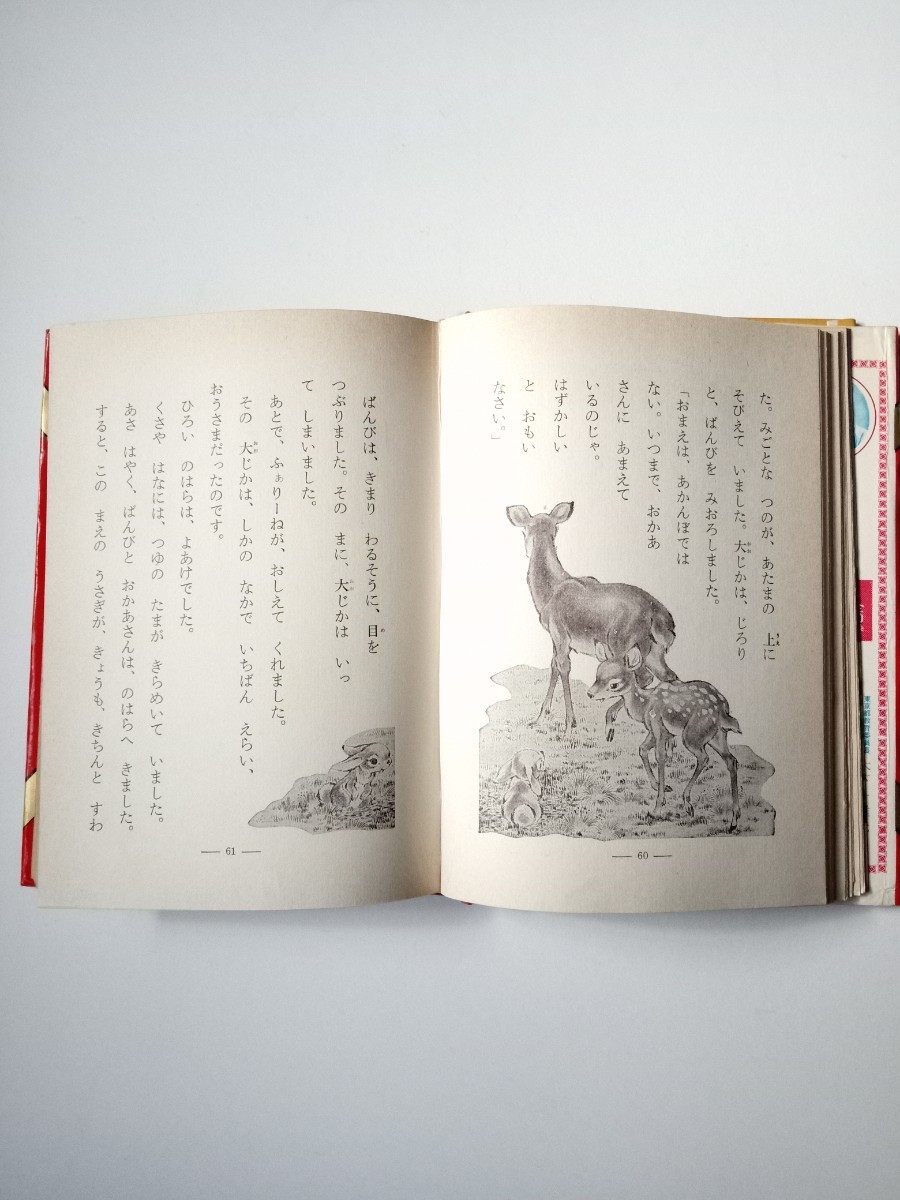 た。みごとな つのが、あたまの 上に
そびえて いました。大じかは、じろり
と、ばんびを みおろしました。
「おまえは、あかんぼでは
ない。いつまで、おかあ
さんに あまえて
いるのじゃ。
はずかしい
と おもい
なさい。」
— 60 —
ばんびは、きまり わるそうに、目を
つぶりました。その まに、大じかは いっ
て しまいました。
あとで、ふぁりーねが、おしえて くれました。
その 大じかは、しかの なかで いちばん えらい、
おうさまだったのです。
ひろい のはらは、よあけでした。
くさや はなには、つゆの たまが きらめいて いました。
あさ はやく、ばんびと おかあさんは、のはらへ きました。
すると、この まえの うさぎが、きょうも、きちんと すわ
— 61 —